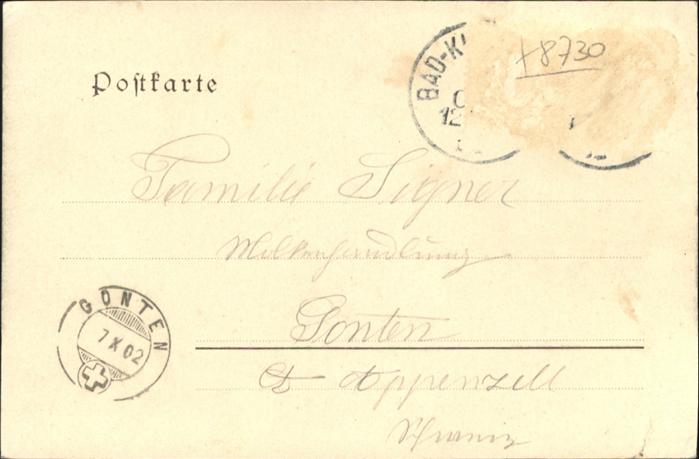 +8730
BAD-K
12
Postkarte
Familie Signer
Molkenhandlung
Gonten
Ct Appenzell
Schweiz
GONTEN
7 X 02